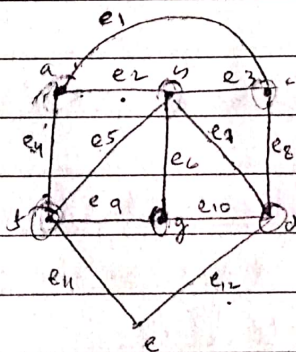 e1
a e2 b e3 c
e4 e5 e6 e7 e8
f e9 g e10 d
e11 e12
e